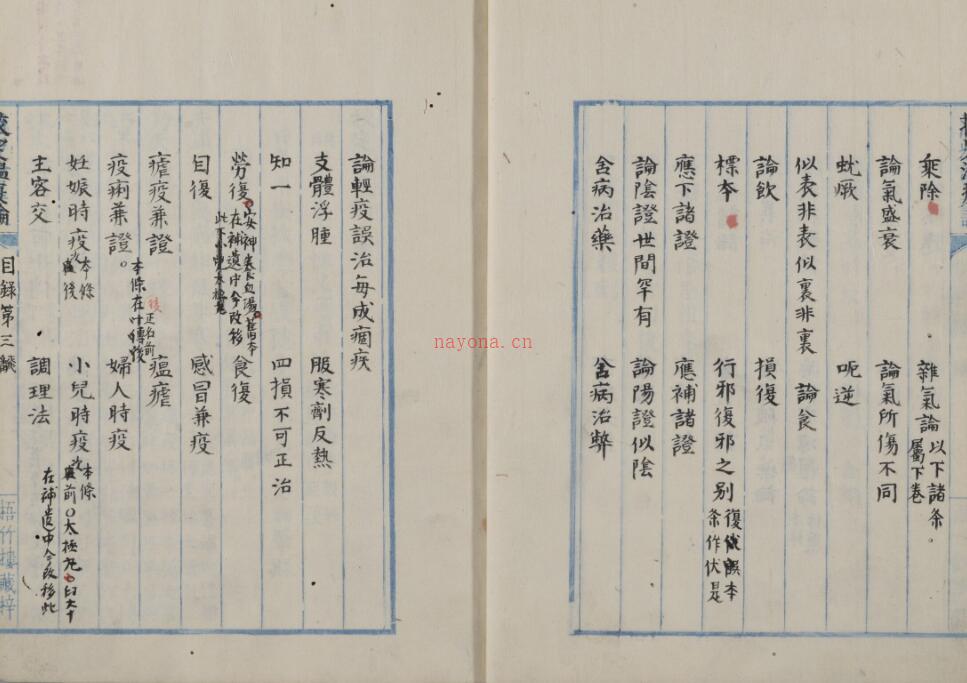 乘除 雜氣論以下諸条屬下卷。
論氣盛衰 論氣所傷不同
蚘厥 呃逆
似表非表似裏非裏 論食
論飲 損復
標本 行邪復邪之别
應下諸證 應補諸證
論陰證世間罕有 論陽證似陰
舍病治藥 舍病治弊
論輕疫誤治每成痼疾
支體浮腫 服寒劑反熱
知一 四損不可正治
勞復 在補遺中今改移 食復
目復 感冒兼疫
瘧疫兼證 瘟瘧
疫痢兼證。 婦人時疫
妊娠時疫 小兒時疫 在補遺中今改移此
主客交 調理法
目録第三
梧竹樓藏梓
nayona.cn